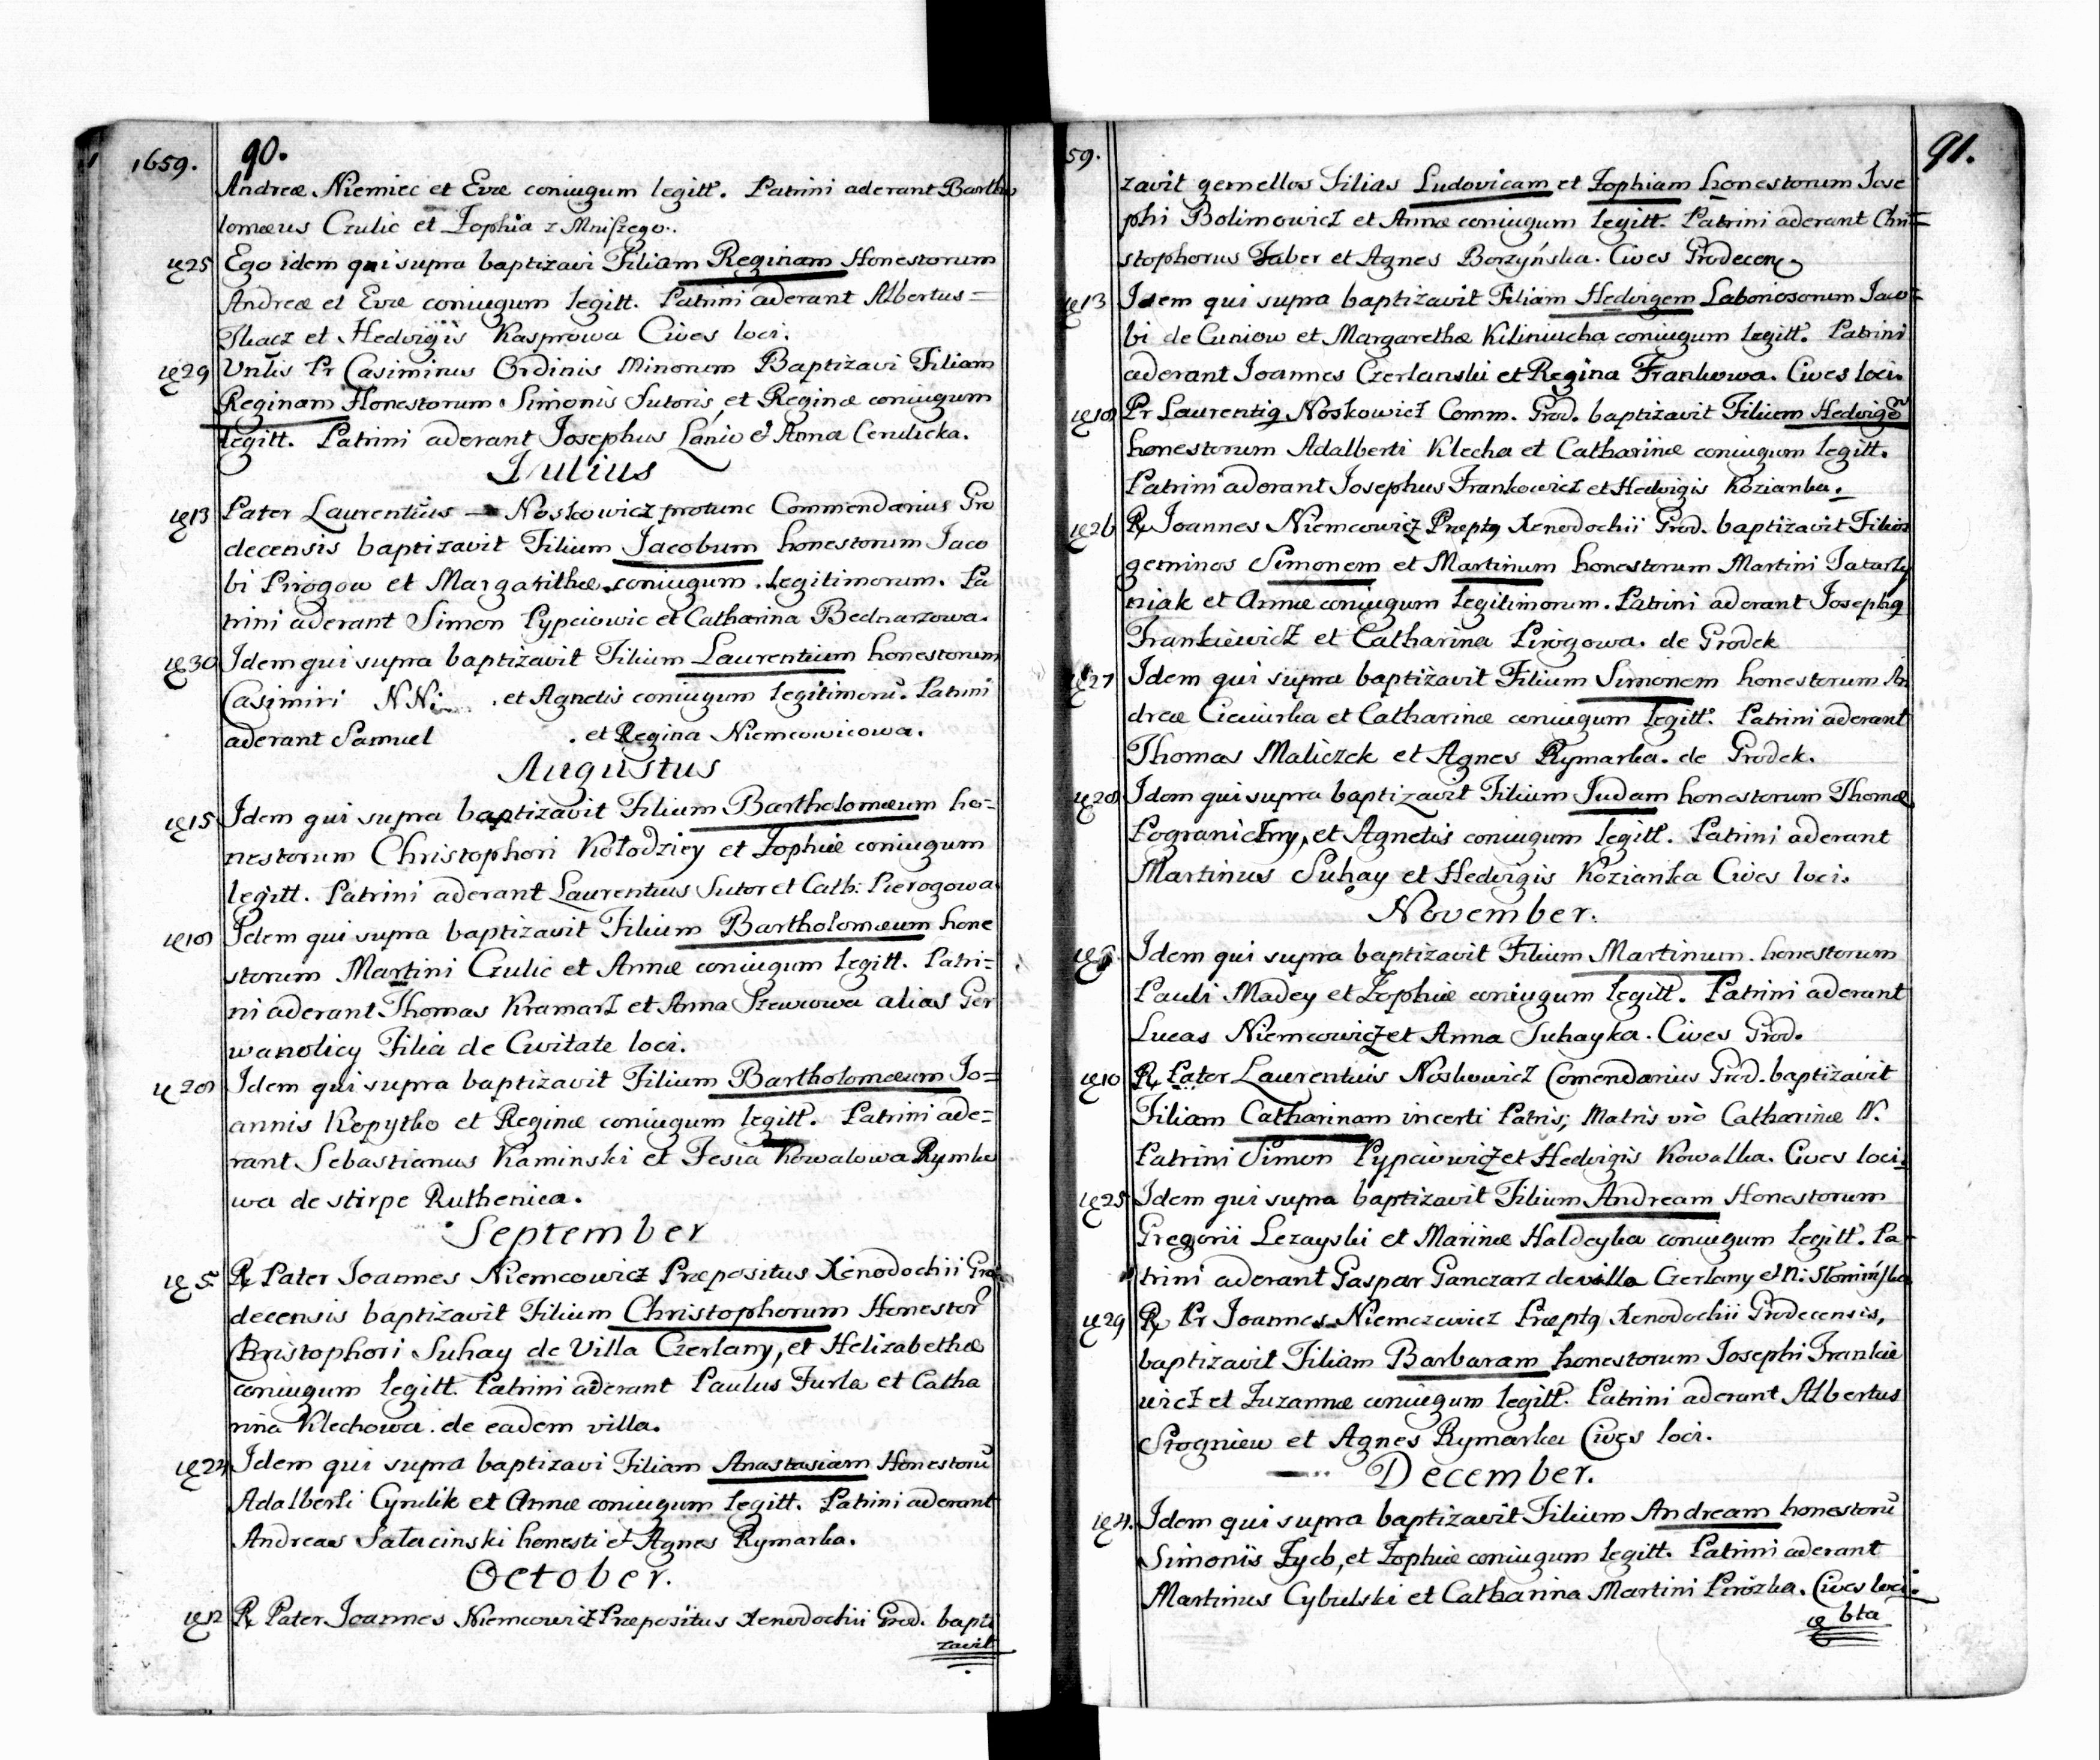 1659. 90.
Andreæ Niemiec et Evæ coniugum legitt. Patrini aderant Bartho
lomæus Czulic et Zophia z Mniszego.
25 Ego idem qui supra baptizavi Filiam Reginam Honestorum
Andreæ et Evæ coniugum legitt. Patrini aderant Albertus=
Tkacz et Hedvigis Kasprowa Cives loci.
29 Pr Casimirus Ordinis Minorum Baptizavi Filiam
Reginam Honestorum Simonis Sutoris et Reginæ coniugum
legitt. Patrini aderant Josephus Lanio et Anna
Iulius
13 Pater Laurentius Noskowicz protunc Commendarius Gro
decensis baptizavit Filium Jacobum honestorum Jaco
bi Pirogow et Margarithæ coniugum legitimorum. Pa
trini aderant Simon Pypciowic et Catharina Bednarzowa.
30 Idem qui supra baptizavit Filium Laurentium honestorum
Casimiri et Agnetis coniugum legitimorū. Patrini
aderant Samuel . et Regina Niemcowicowa.
Augustus
15 Idem qui supra baptizavit Filium Bartholomæum ho=
nestorum Christophori Kołodziey et Zophiæ coniugum
legitt. Patrini aderant Laurentius Sutor et Cath. Pierogowa
Idem qui supra baptizavit Filium Bartholomæum hone
storum Martini Czulic et Annæ coniugum legitt. Patri=
ni aderant Thomas Kramarz et Anna Szewcowa alias Ger
wanolicy Filia de Civitate loci.
Idem qui supra baptizavit Filium Bartholomæum Jo=
annis Kopytko et Reginæ coniugum legitt. Patrini ade=
rant Sebastianus Kaminski et Fesia Kowalowa Rymko
wa de stirpe Ruthenica.
September
5 R Pater Joannes Niemcowicz Præpositus Xenodochii Gro
decensis baptizavit Filium Christophorum Honestor
Christophori Suhay de Villa Czerlany, et Helizabethæ
coniugum legitt. Patrini aderant Paulus Furla et Catha
rina Klechowa de eadem villa.
Idem qui supra baptizavi Filiam Anastasiam Honestorū
Adalberti Cyrulik et Annæ coniugum legitt. Patrini aderant
Andreas Salacinski honesti et Agnes Rymarka.
October.
12 R Pater Joannes Niemcowicz Præpositus Xenodochii Grod. bapti
zavit
59. 91.
zavit gemellos Filias Ludovicam et Zophiam honestorum Jose
phi Bolimowicz et Annæ coniugum legitt. Patrini aderant Chri=
stophorus Faber et Agnes Borzyńska. Cives Grodecen
13 Idem qui supra baptizavit Filiam Hedvigem Laboriosorum Jaco=
bi de Cuniow et Margarethæ Kiliniucha coniugum legitt. Patrini
aderant Joannes Czerlanski et Regina Frankowa. Cives loci.
Pr Laurentiq Noskowicz Comm. Grod. baptizavit Filium Hedvigē
honestorum Adalberti Klecha et Catharinæ coniugum legitt.
Patrini aderant Josephus Frankowicz et Hedvigis Kozianka.
26 R Joannes Niemcowicz Præptq Xenodochii Grod. baptizavit Filios
geminos Simonem et Martinum honestorum Martini Tatarzy
niak et Annæ coniugum legitimorum. Patrini aderant Josephq
Frankiewicz et Catharina Pirogowa. de Grodek
27 Idem qui supra baptizavit Filium Simonem honestorum An
dreæ et Catharinæ coniugum legitt. Patrini aderant
Thomas Maliczek et Agnes Rymarka. de Grodek.
Idem qui supra baptizavit Filium Judam honestorum Thomæ
Pograniczny, et Agnetis coniugum legitt. Patrini aderant
Martinus Suhay et Hedvigis Kozianka Cives loci.
November.
Idem qui supra baptizavit Filium Martinum honestorum
Pauli Madey et Zophiæ coniugum legitt. Patrini aderant
Lucas Niemcowicz et Anna Suhayka. Cives Grod.
10 R Pater Laurentius Noskowicz Comendarius Grod. baptizavit
Filiam Catharinam incerti Patris, Matris vrò Catharinæ N.
Patrini Simon Pypciowicz et Hedvigis Kowalka. Cives loci.
25 Idem qui supra baptizavit Filium Andream Honestorum
Gregorii Lezayski et Marinæ Haldeyka coniugum legitt. Pa=
trini aderant Gaspar Ganczarz de villa Czerlany et N: Słomińska
29 R Pr Joannes Niemczewicz Præptq Xenodochii Grodecensis,
baptizavit Filiam Barbaram honestorum Josephi Frankie
wicz et Zuzannæ coniugum legitt. Patrini aderant Albertus
Srogniew et Agnes Rymarka Cives loci.
December.
4. Idem qui supra baptizavit Filium Andream honestorū
Simonis Zycb, et Zophiæ coniugum legitt. Patrini aderant
Martinus Cybulski et Catharina Martini Pirożka. Cives loci.
bta